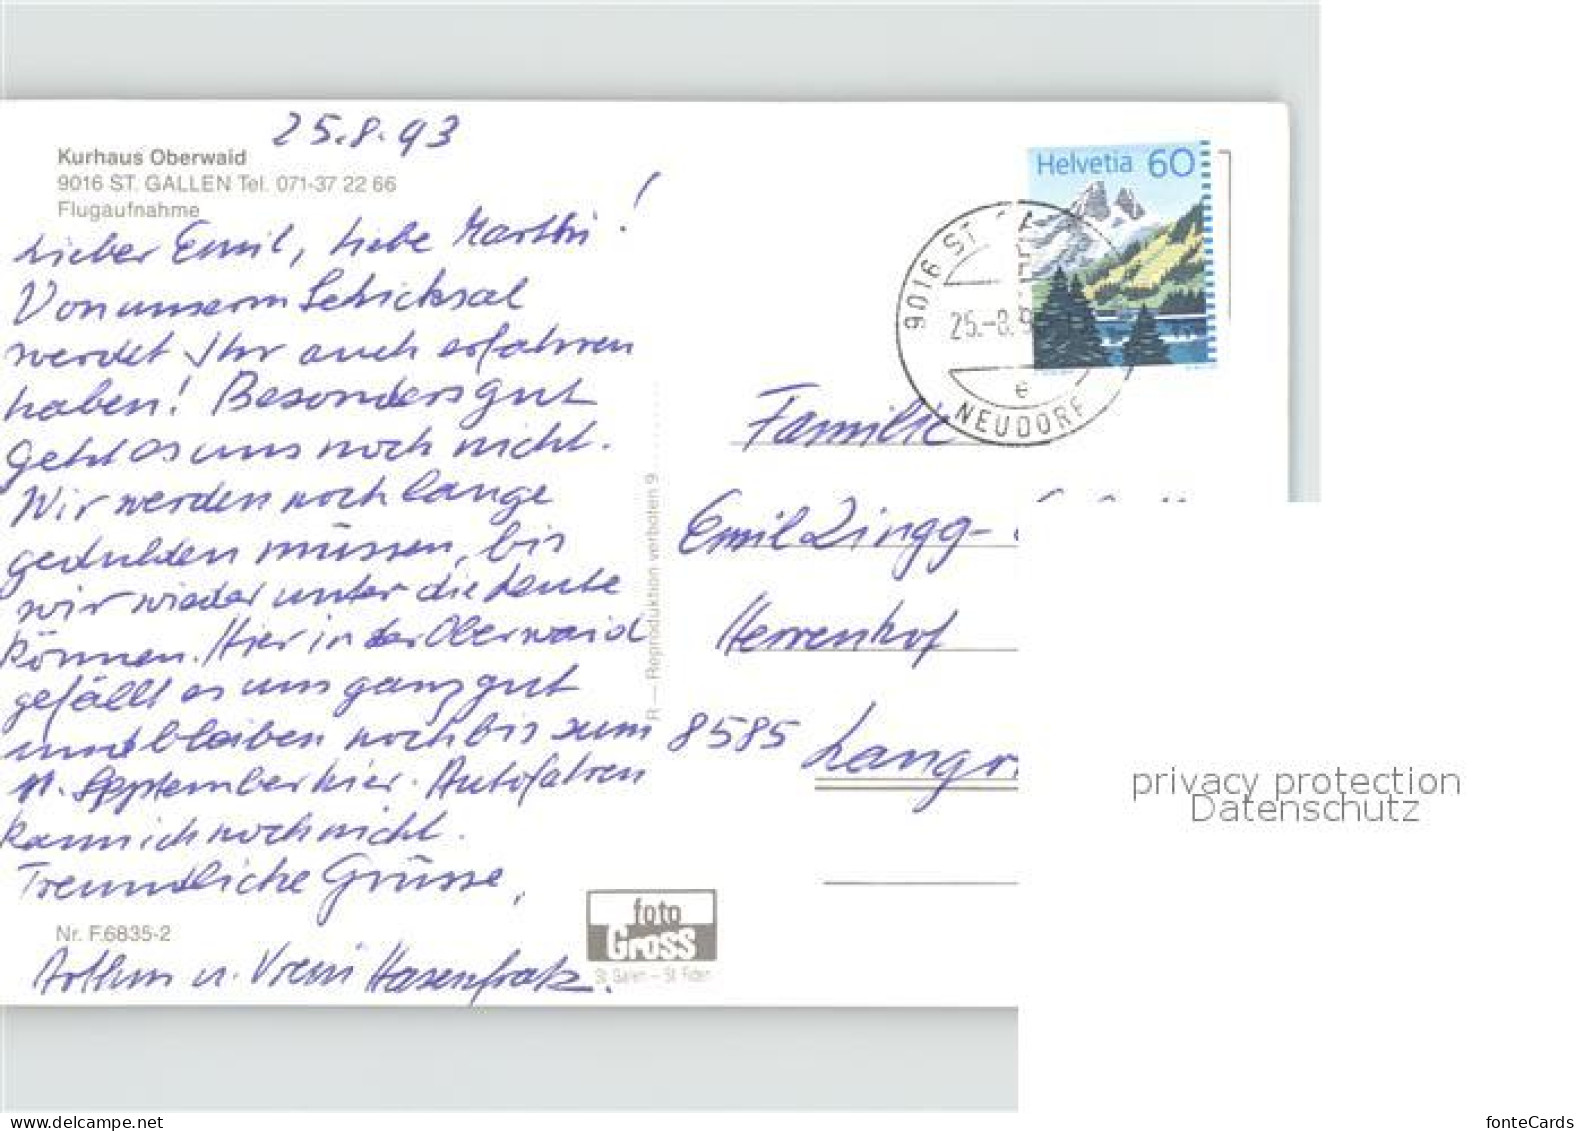 25.8.93
Kurhaus Oberwaid
9016 ST. GALLEN Tel. 071-37 22 66
Flugaufnahme
Lieber Emil, liebe Marthi!
Von unserm Schicksal
werdet Ihr auch erfahren
haben! Besonders gut
geht es uns noch nicht.
Wir werden noch lange
gedulden müssen, bis
wir wieder unter die Leute
können. Hier in der Oberwaid
gefällt es uns ganz gut
und bleiben noch bis zum
11. September hier. Autofahren
kann ich noch nicht.
Freundliche Grüsse,
Nr. F.6835-2
Arthur u. Vreni Hasenfratz.
R — Reproduktion verboten 9
foto
Gross
St. Gallen – St. Fiden
Helvetia 60
9016 ST
25.-8.9
e
NEUDORF
Familie
Emil Zingg-
Herrenhof
8585 Langr
privacy protection
Datenschutz
fonteCards